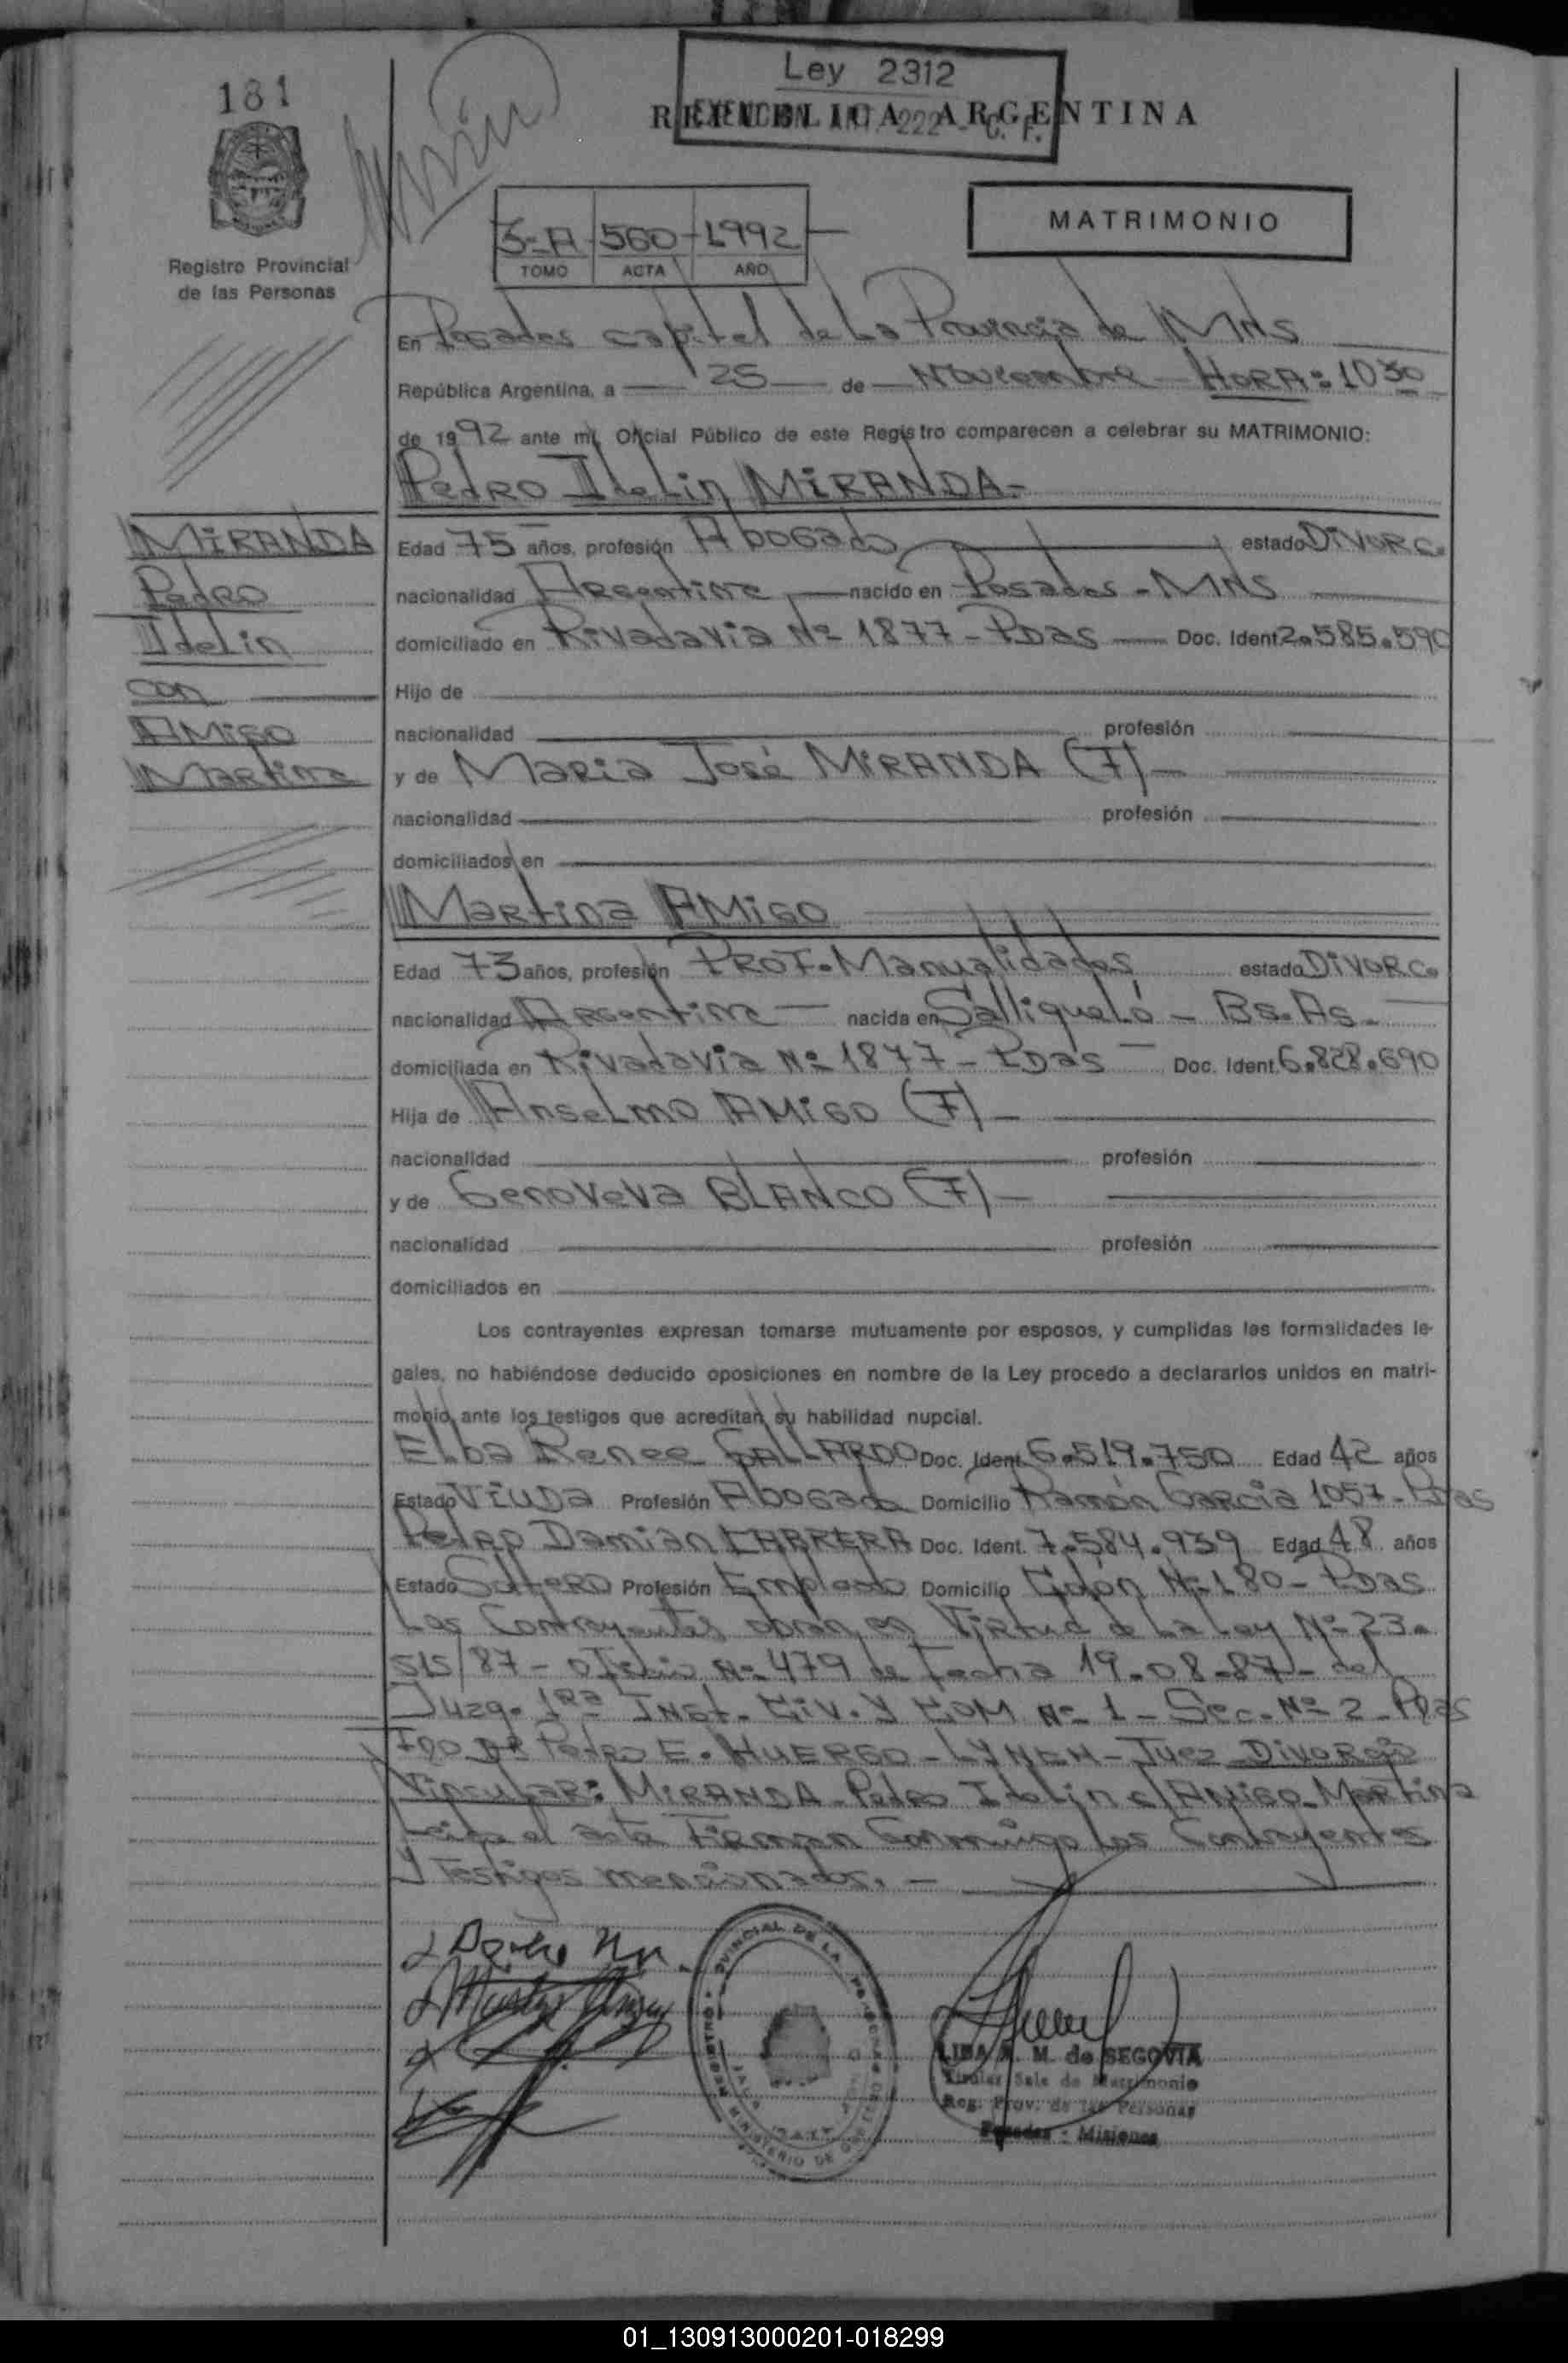 181
Ley 2312
REPUBLICA ARGENTINA
EXENCION ART. 222 - C. F.
Registro Provincial
de las Personas
3=A 560 1992
TOMO ACTA AÑO
MATRIMONIO
En Posadas capital de La Provincia de MNS
República Argentina, a 25 de Noviembre HORA: 10 30
de 1992 ante mí, Oficial Público de este Registro comparecen a celebrar su MATRIMONIO:
Pedro Idelin MIRANDA-
MIRANDA
Pedro
Idelin
con
AMIGO
Martina
Edad 75 años, profesión Abogado estado DIVORC.
nacionalidad Argentina nacido en Posadas - MNS
domiciliado en Rivadavia Nº 1877 - PDAS Doc. Ident 2.585.590
Hijo de
nacionalidad profesión
y de Maria José MIRANDA (F) -
nacionalidad profesión
domiciliados en
Martina AMIGO
Edad 73 años, profesión PROF. Manualidades estado DIVORC.
nacionalidad Argentina nacida en Salliqueló - Bs. As.
domiciliada en Rivadavia Nº 1877 - PDAS Doc. Ident. 6.828.690
Hija de Anselmo AMIGO (F) -
nacionalidad profesión
y de Genoveva BLANCO (F) -
nacionalidad profesión
domiciliados en
Los contrayentes expresan tomarse mutuamente por esposos, y cumplidas las formalidades le-
gales, no habiéndose deducido oposiciones en nombre de la Ley procedo a declararlos unidos en matri-
monio, ante los testigos que acreditan su habilidad nupcial.
Elba Renee GALLARDO Doc. Ident. 6.519.750 Edad 42 años
Estado Viuda Profesión Abogada Domicilio Ramón García 1057 - Pdas
Pedro Damian CABRERA Doc. Ident. 7.584.939 Edad 48 años
Estado Soltero Profesión Empleado Domicilio Nº 180 - Pdas
Los Contrayentes obran en Virtud de La Ley Nº 23.
515/87 - Oficio Nº 479 de Fecha 19-08-87 - del
Juzg. 1ra Inst. Civ. y COM Nº 1 - Sec. Nº 2 - Pdas
Fdo Dr Pedro E. HUERGO - LYNCH - Juez Divorcio
Vincular: MIRANDA - Pedro Idelin c/ AMIGO - Martina
Leida el acta Firman Conmigo los Contrayentes
y Testigos mencionados. -
M. de SEGOVIA
Titular Sala de Matrimonio
Reg. Prov. de las Personas
Posadas - Misiones
01_130913000201-018299